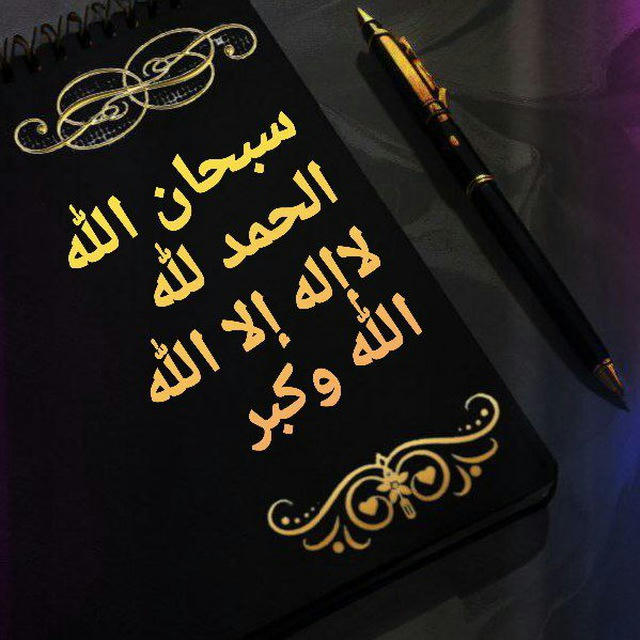 سبحان الله
الحمد لله
لاإله إلا الله
الله وكبر